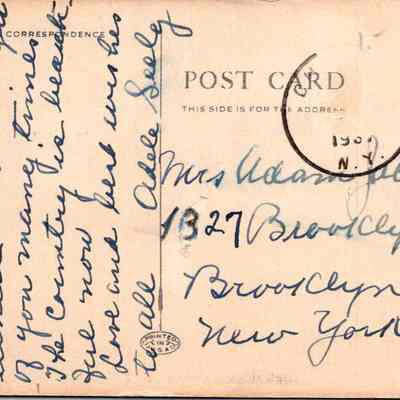 CORRESPONDENCE
of you many times
The Country is beauti-
ful now
Love and best wishes
to all Adele Seely
POST CARD
THIS SIDE IS FOR THE ADDRESS
N.Y.
Mrs Adam
1327 Brookly
Brooklyn
New York
PRINTED
IN
U.S.A.